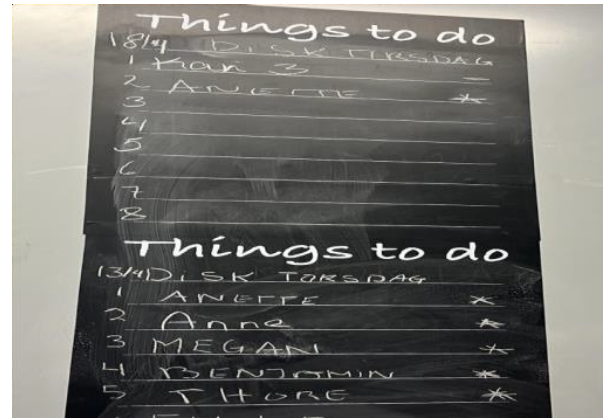 Things to do
18/4 DISK TORSDAG
1 Kari 3 –
2 ANETTE *
3
4
5
6
7
8
Things to do
13/4) DISK TORSDAG
1 ANETTE *
2 Anne *
3 MEGAN *
4 BENJAMIN *
5 THORE *